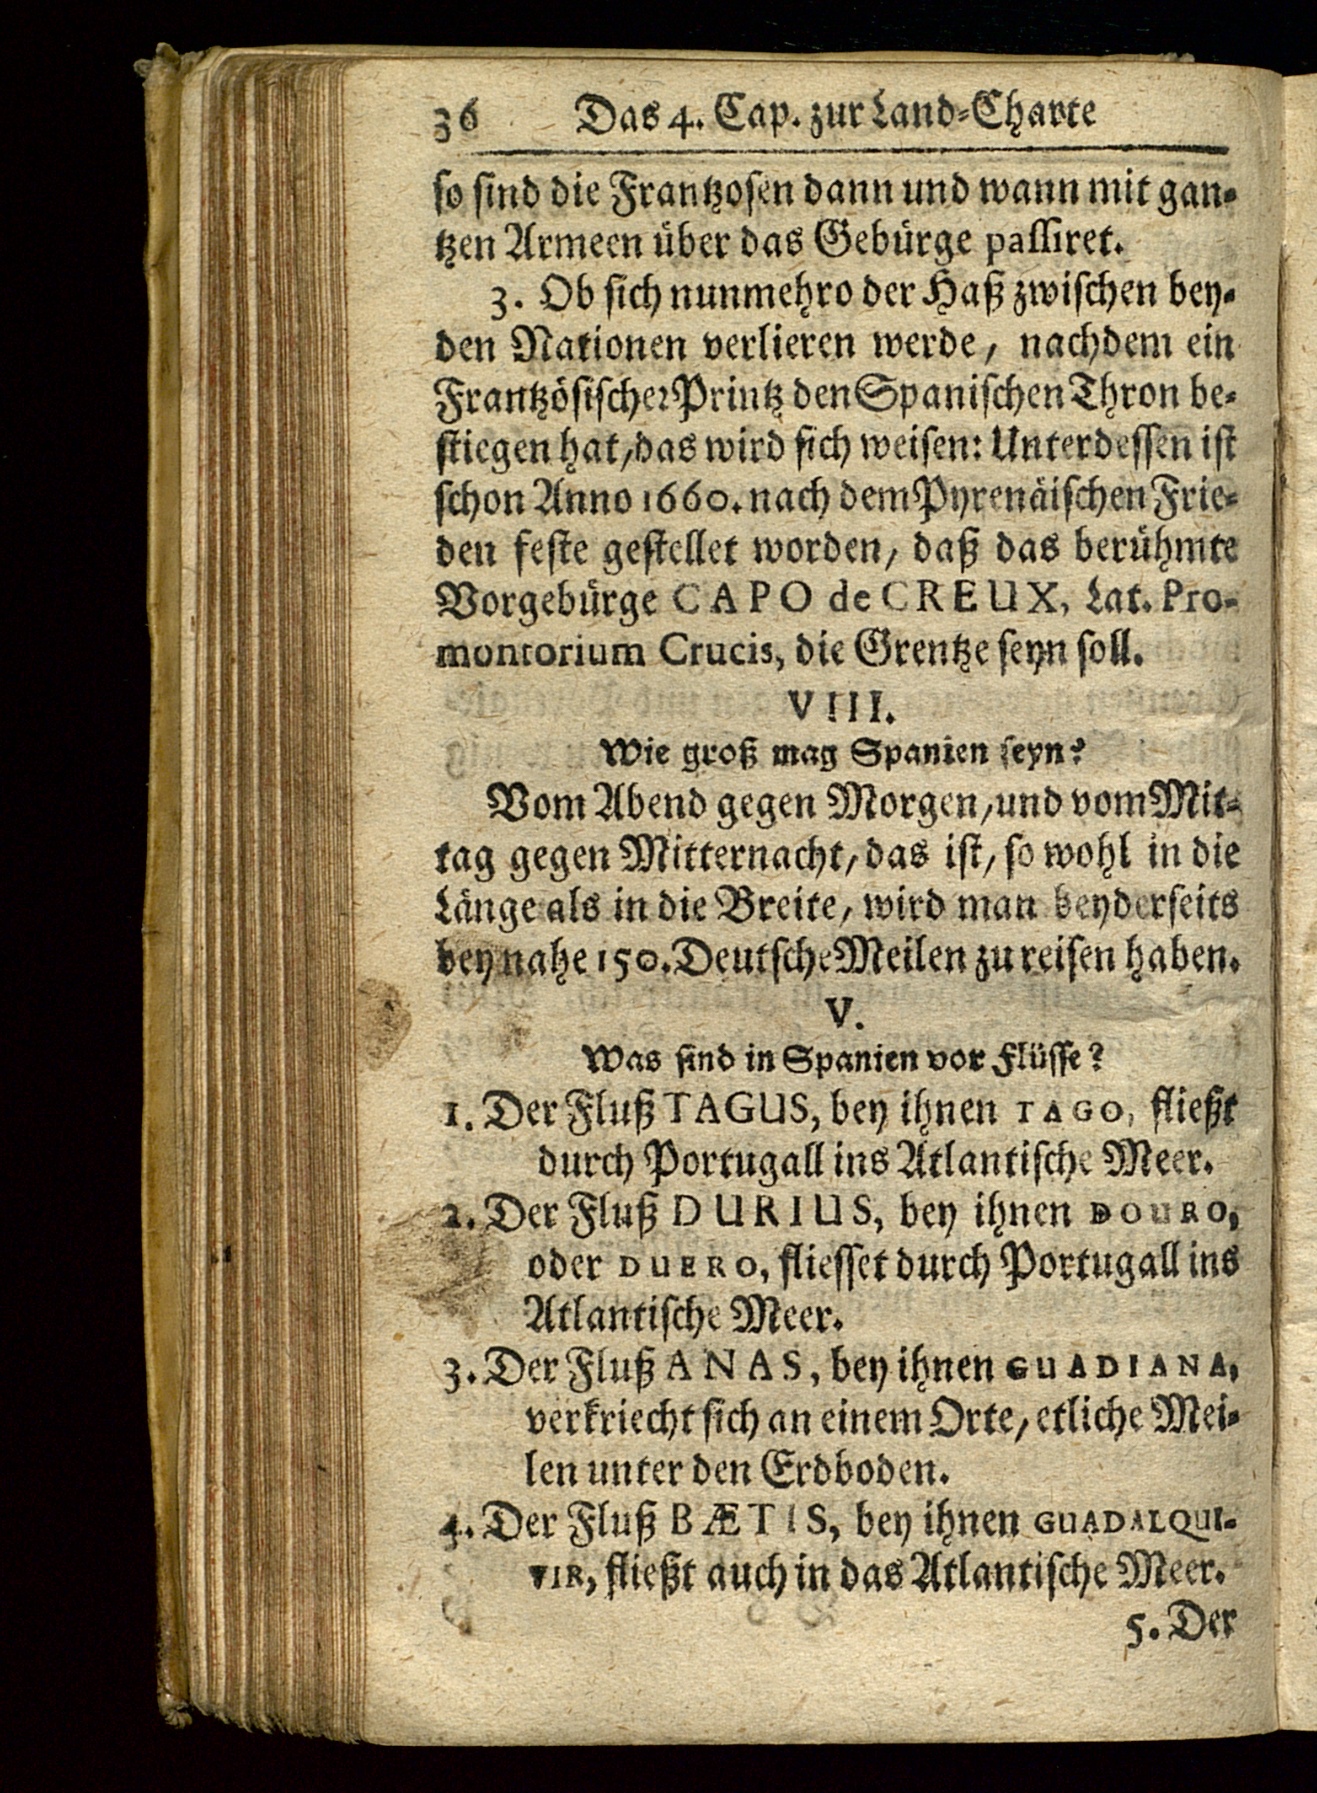 36 Das 4. Cap. zur Land-Charte
so sind die Frantzosen dann und wann mit gan-
tzen Armeen über das Gebürge passiret.
3. Ob sich nunmehro der Haß zwischen bey-
den Nationen verlieren werde, nachdem ein
Frantzösischer Printz den Spanischen Thron be-
stiegen hat, das wird sich weisen: Unterdessen ist
schon Anno 1660. nach dem Pyrenäischen Frie-
den feste gestellet worden, daß das berühmte
Vorgebürge CAPO de CREUX, Lat. Pro-
montorium Crucis, die Grentze seyn soll.
VIII.
Wie groß mag Spanien seyn?
Vom Abend gegen Morgen, und vom Mit-
tag gegen Mitternacht, das ist, so wohl in die
Länge als in die Breite, wird man beyderseits
bey nahe 150. Deutsche Meilen zu reisen haben.
V.
Was sind in Spanien vor Flüsse?
1. Der Fluß TAGUS, bey ihnen TAGO, fließt
durch Portugall ins Atlantische Meer.
2. Der Fluß DURIUS, bey ihnen DOURO,
oder DUERO, fliesset durch Portugall ins
Atlantische Meer.
3. Der Fluß ANAS, bey ihnen GUADIANA,
verkriecht sich an einem Orte, etliche Mei-
len unter den Erdboden.
4. Der Fluß BÆTIS, bey ihnen GUADALQUI-
VIR, fließt auch in das Atlantische Meer.
5. Der